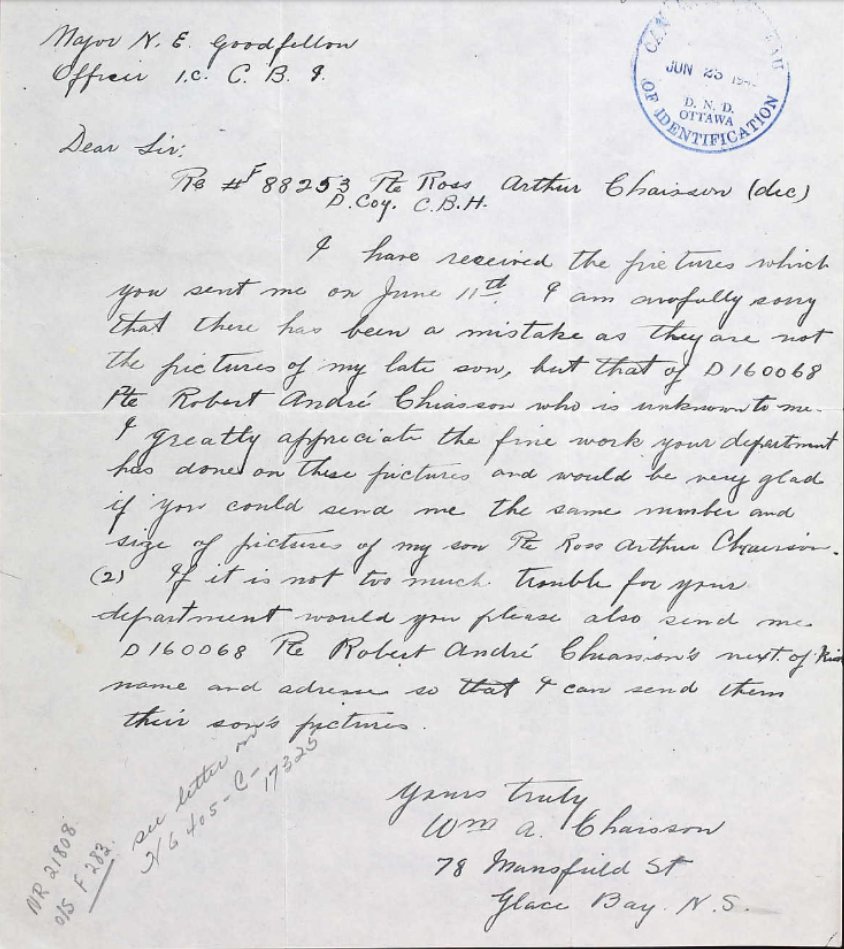 Major N. E. Goodfellow
Officer I.C. C. B. I.
JUN 25 194
D. N. D.
OTTAWA
OF IDENTIFICATION
Dear Sir:
Re # F 88253 Pte Ross Arthur Chaisson (dec)
D. Coy. C.B.H.
I have received the pictures which
you sent me on June 11th. I am awfully sorry
that there has been a mistake as they are not
the pictures of my late son, but that of D160068
Pte Robert André Chiasson who is unknown to me.
I greatly appreciate the fine work your department
has done on these pictures and would be very glad
if you could send me the same number and
size of pictures of my son Pte Ross Arthur Chaisson.
(2) If it is not too much trouble for your
department would you please also send me
D160068 Pte Robert André Chiasson's next of Kin
name and adresse so that I can send them
their son's pictures.
see letter on
N6 405-C-17325
NR 21808
o/s F 282.
Yours truly
Wm A. Chaisson
78 Mansfield St
Glace Bay. N.S.